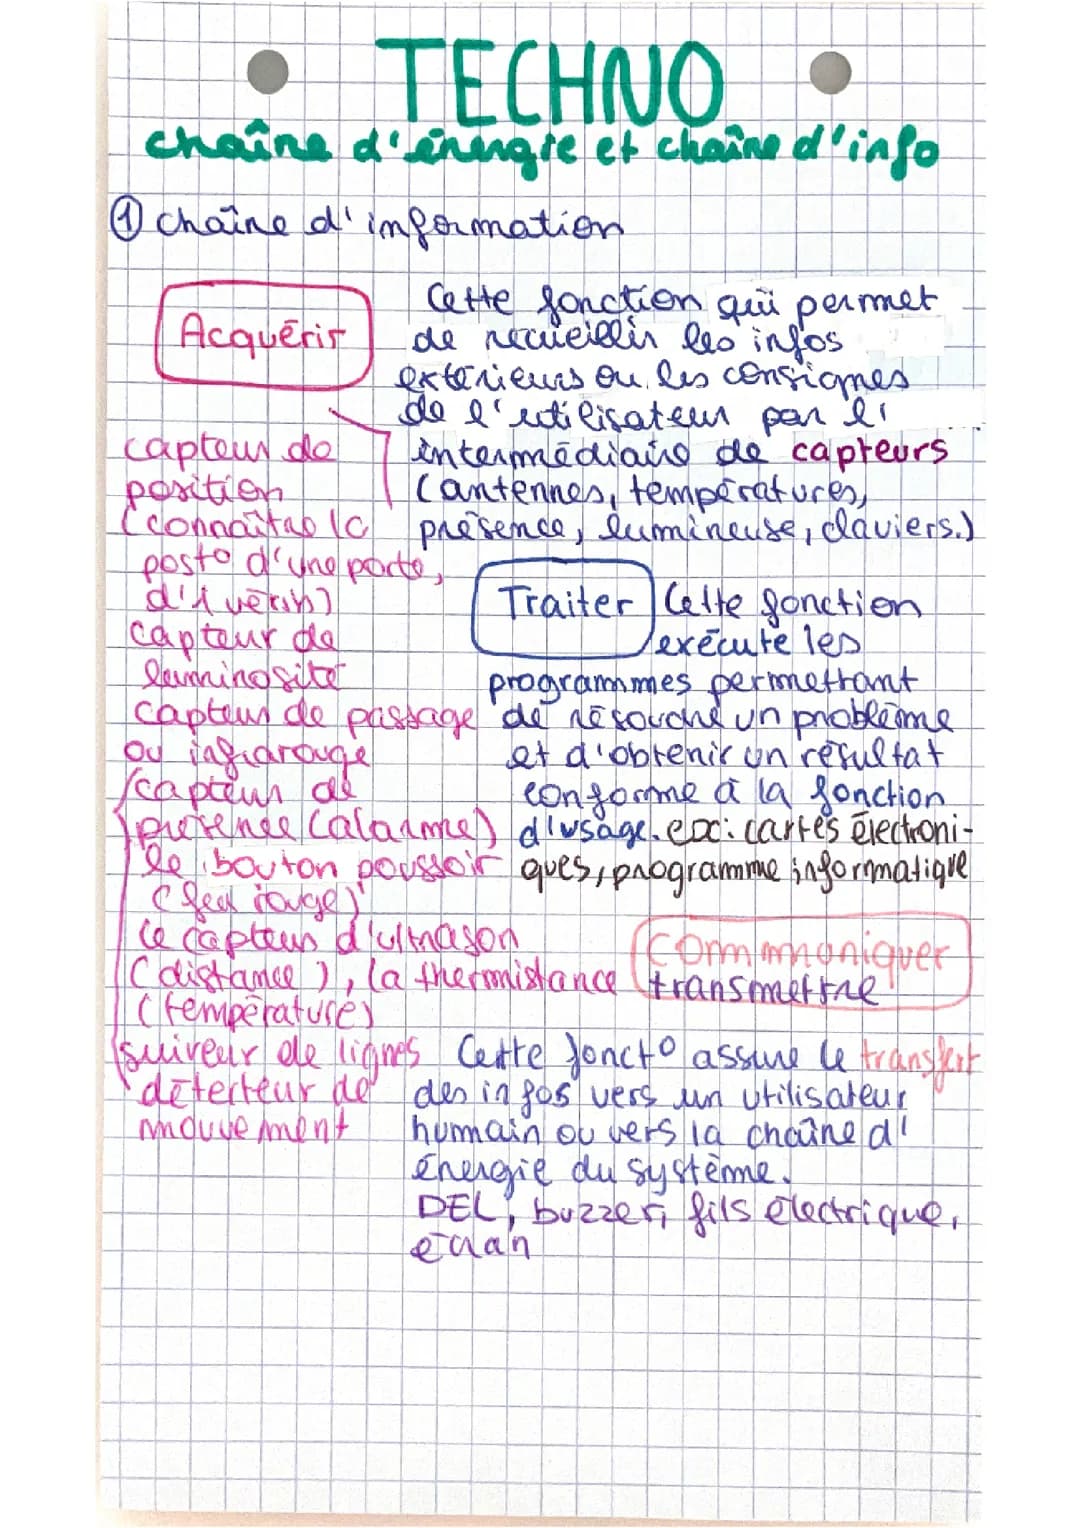 TECHNO
chaîne d'énergie et chaîne d'info
① chaîne d'information
Acquérir
Cette fonction qui permet
de recueillir les infos
extérieurs ou les consignes
de l'utilisateur par l'
intermédiaire de capteurs
(antennes, températures,
présence, lumineuse, claviers.)
capteur de
position
(connaître la
posto d'une porte,
d'1 vérin)
capteur de
luminosité
capteur de passage
ou infrarouge
capteur de
présence (alarme)
le bouton poussoir
(feu rouge)
le capteur d'ultrason
(distance), la thermistance
(température)
suiveur de lignes
détecteur de
mouvement
Traiter
Cette fonction
exécute les
programmes permettant
de résoudre un problème
et d'obtenir un résultat
conforme à la fonction
d'usage. ex: cartes électroni-
ques, programme informatique
Communiquer
transmettre
Cette foncto assure le transfert
des infos vers un utilisateur
humain ou vers la chaîne d'
énergie du système.
DEL, buzzer, fils électrique,
écran